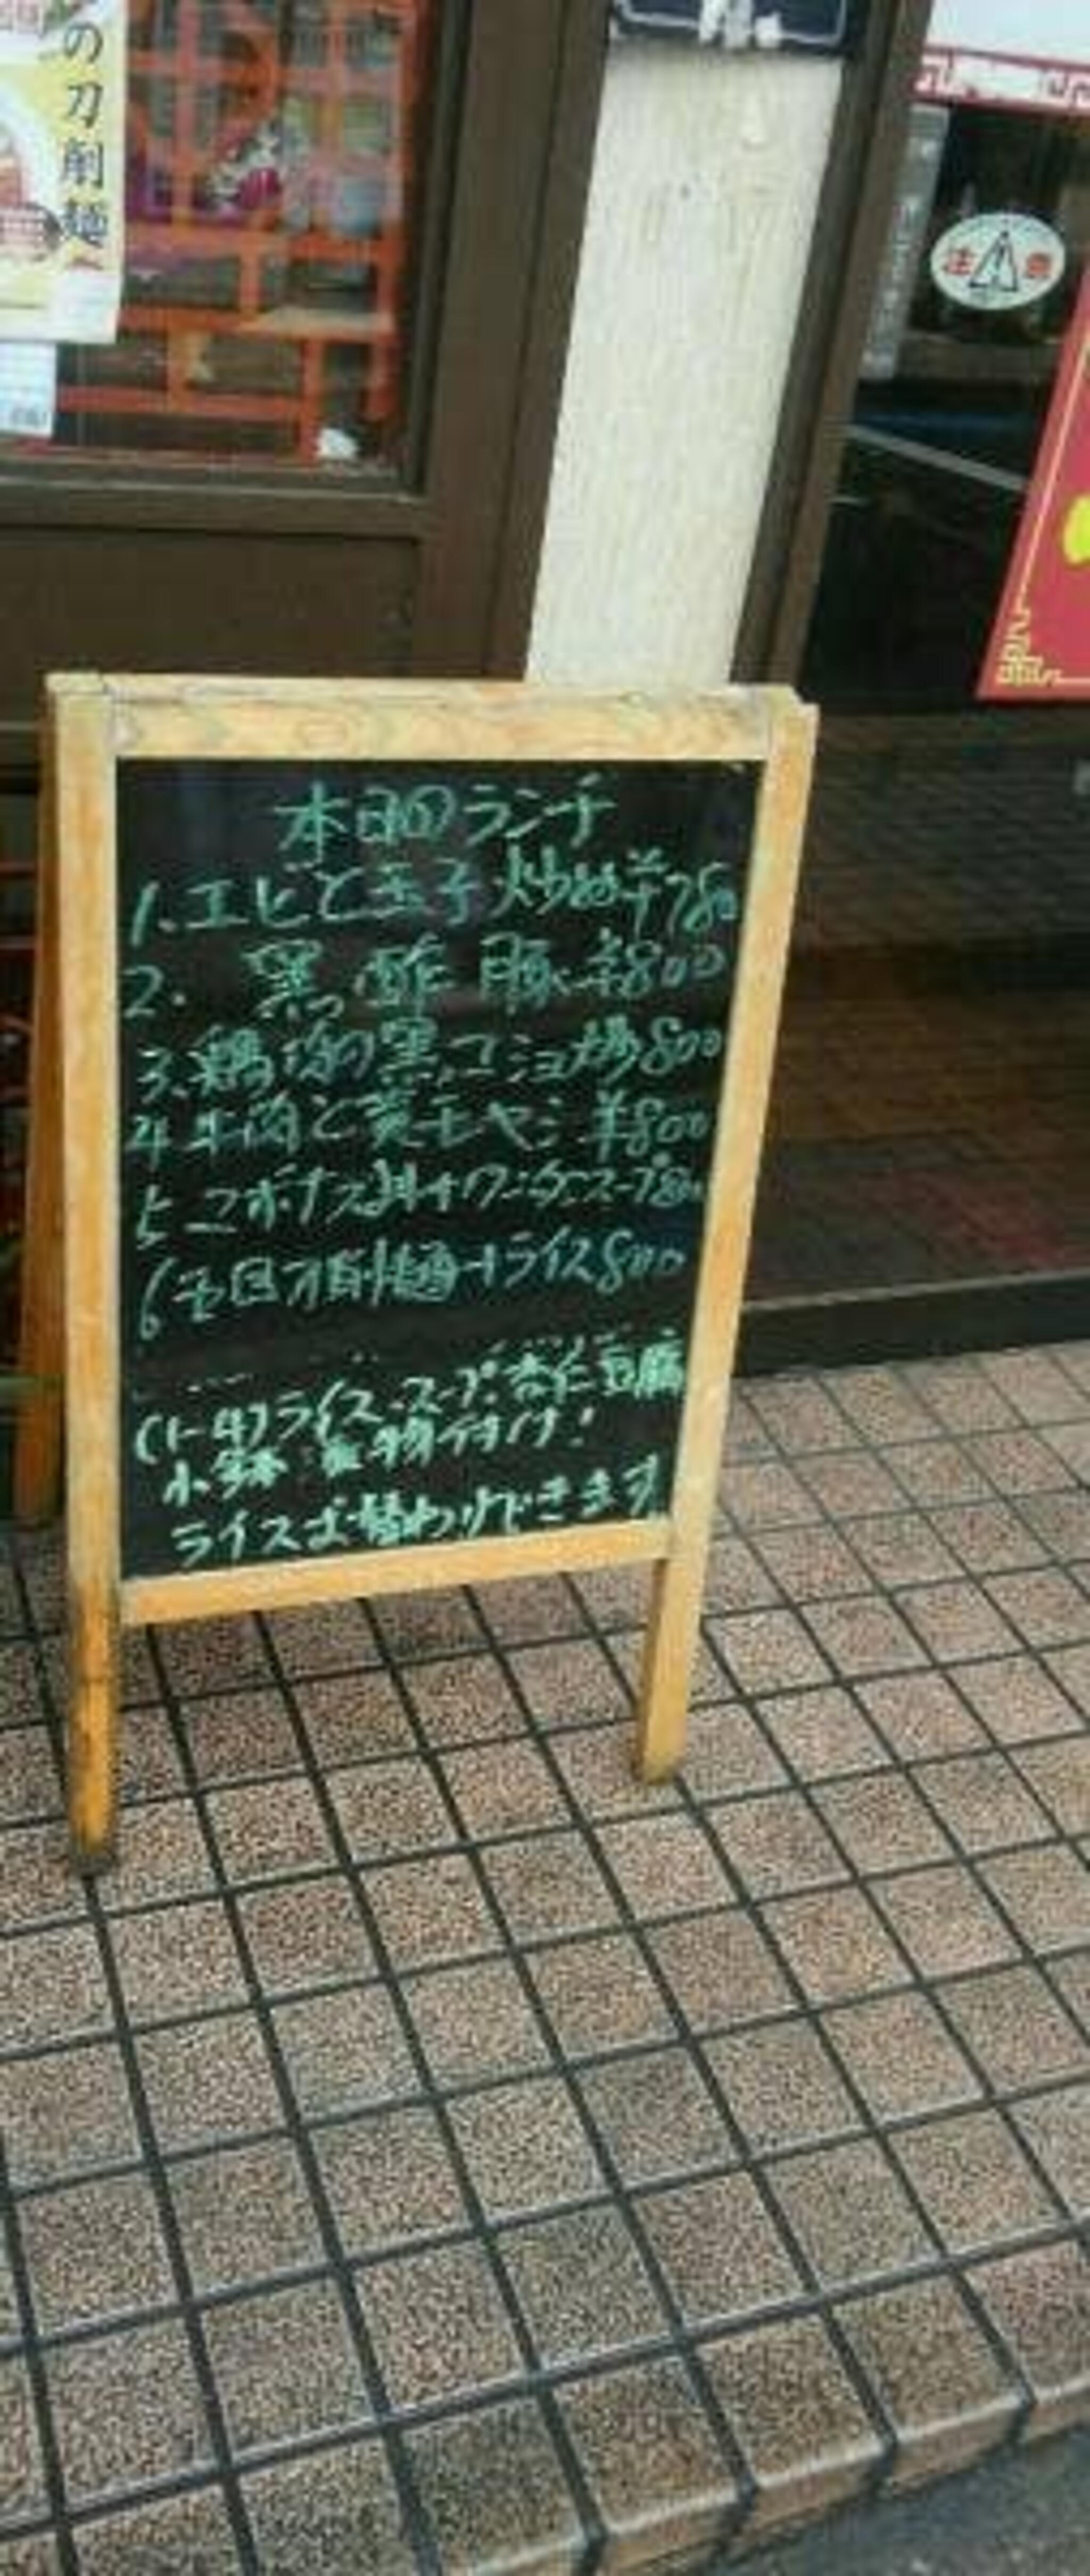 の刀削麺
注意
本日のランチ
1.エビと玉子炒め ¥780
2. 黒酢豚 ¥800
3.鶏の黒コショウ 800
4 牛肉と黄モヤシ ¥800
5 マボナス丼+ワンタンスープ780
6 刀削麺+ライス800
(1-4)ライス.スープ.杏仁豆腐
小鉢 漬物付け!
ライスお替わりできます